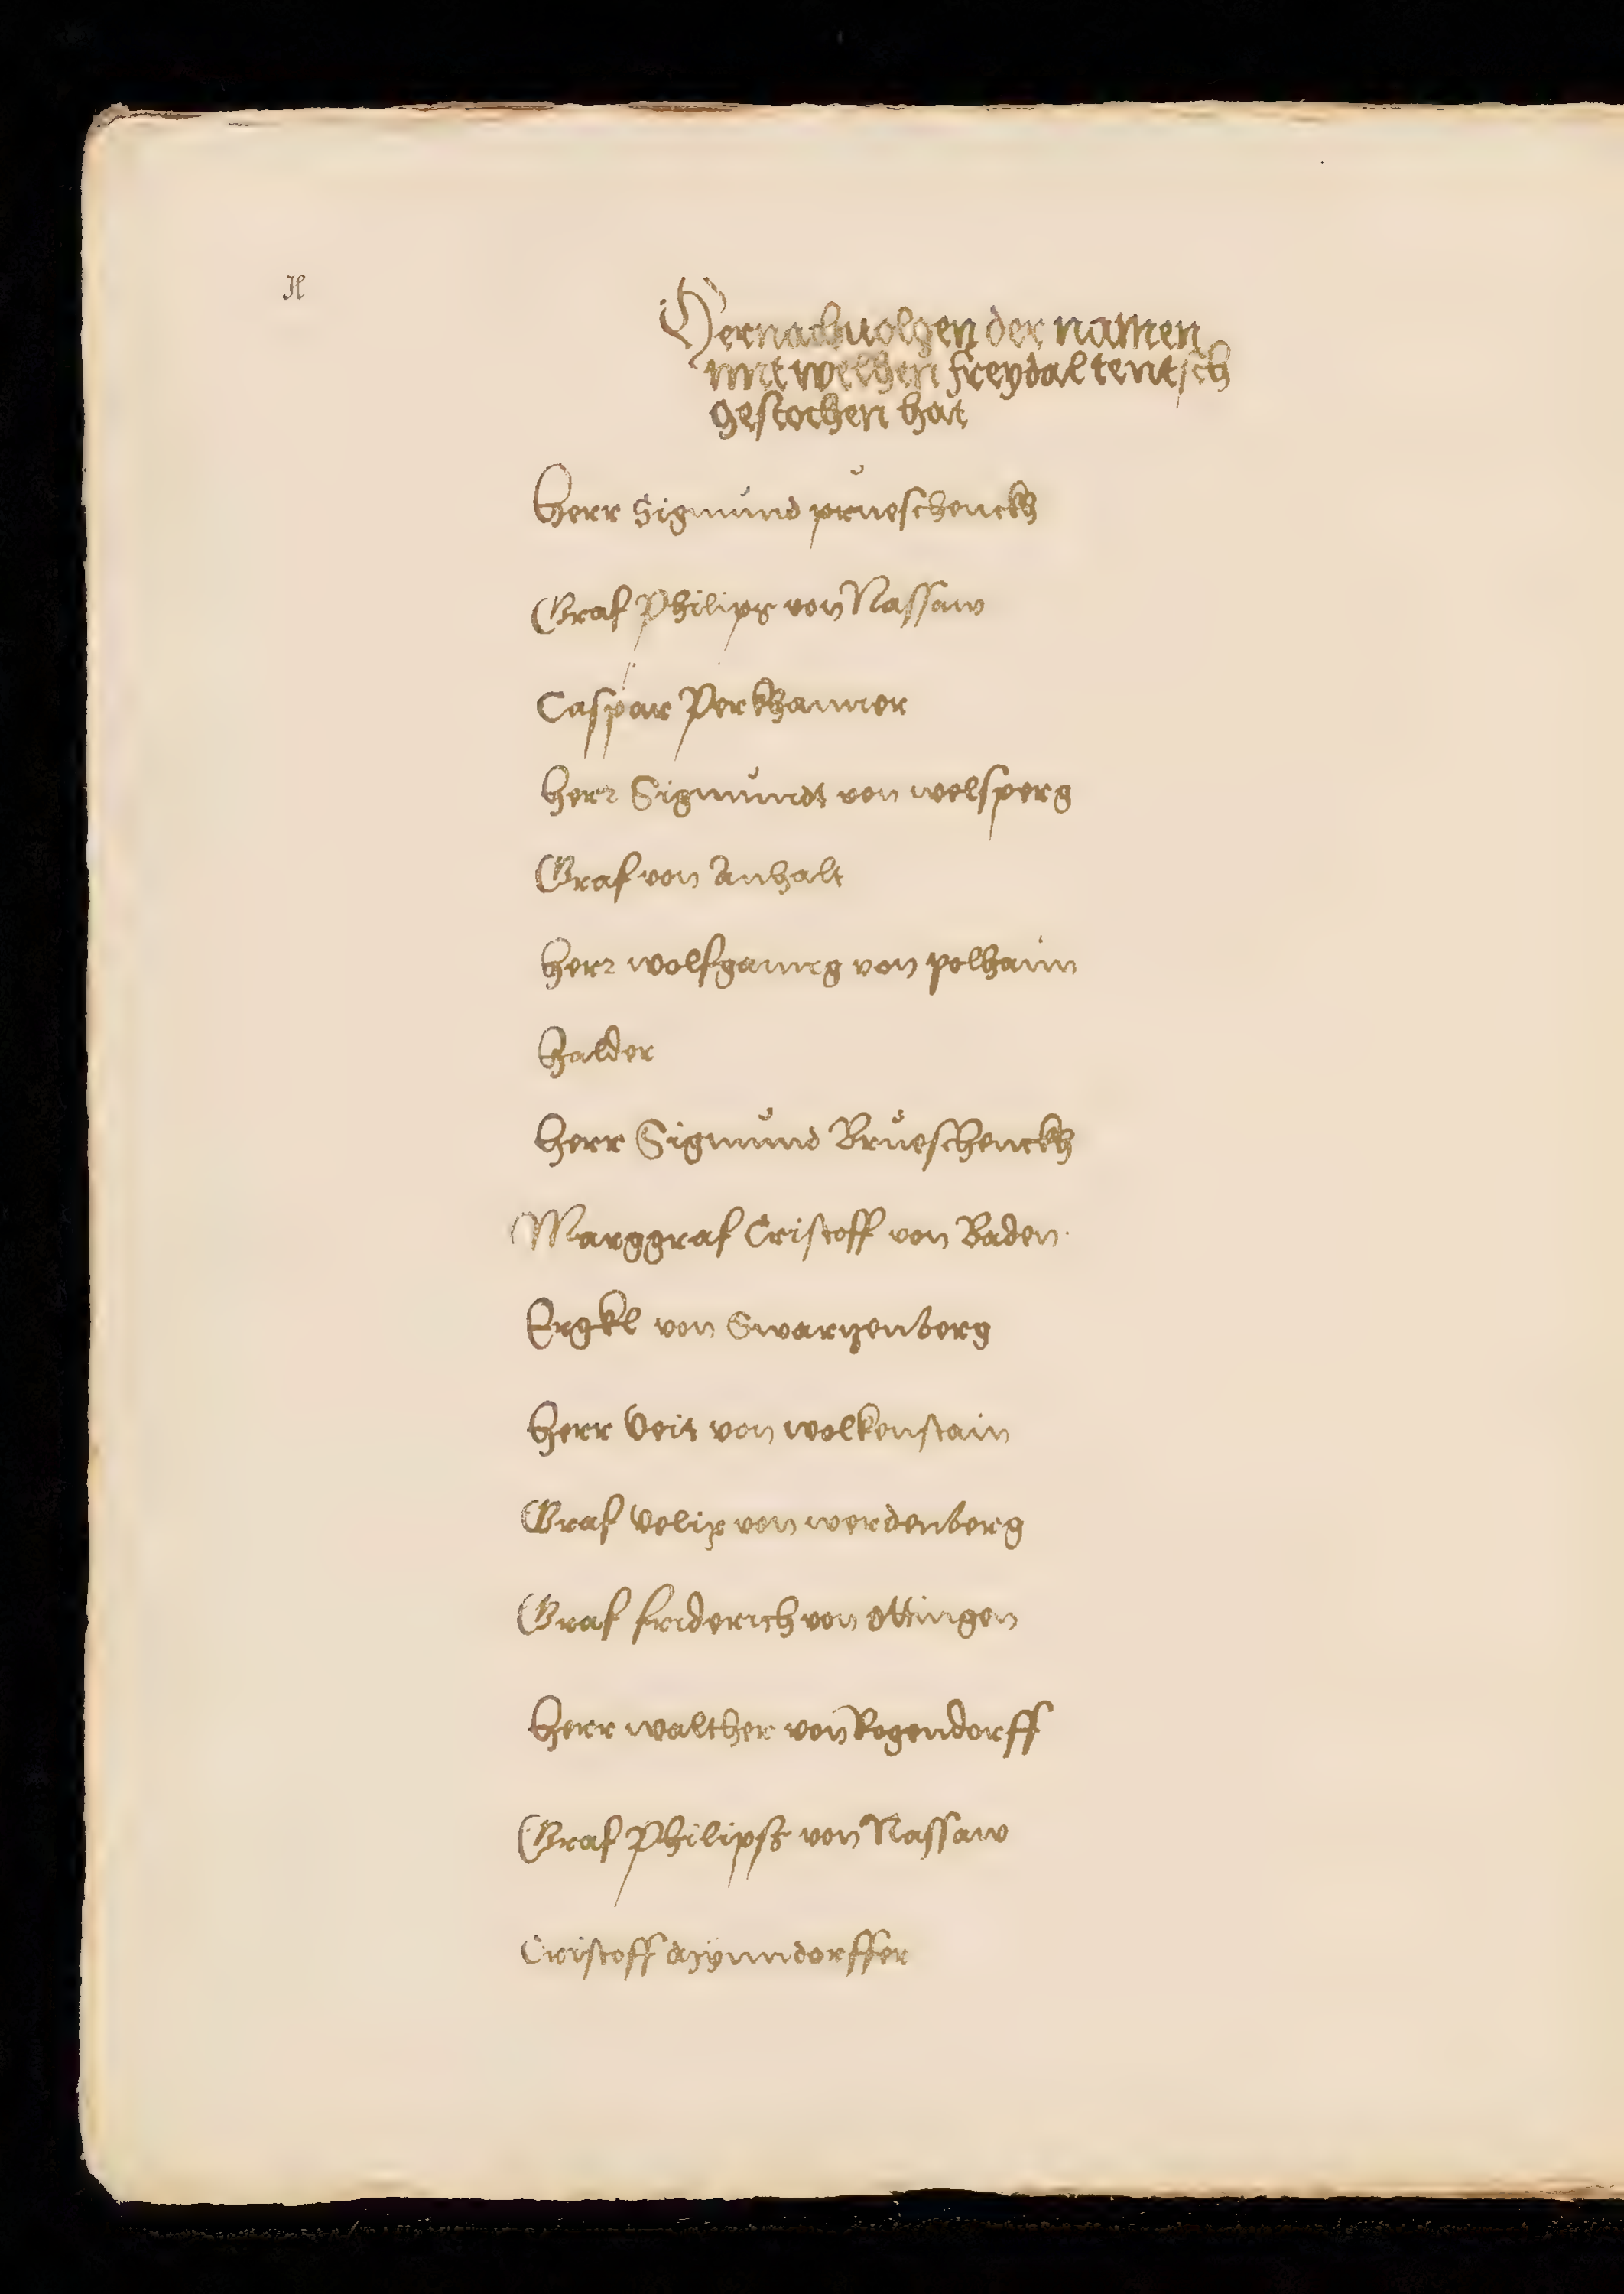 Hernachuolgen der namen
mit welhen freydal teutsch
gestochen hat
Herr Sigmund prueschenckh
Graf Philips von Nassaw
Caspar Perkhamer
herr Sigmundt von welsperg
Graf von Anhalt
herr wolfganng von polhaim
Halder
herr Sigmund Brueschenckh
Marggraf Cristoff von Baden
Ergkl von Swarzenberg
herr Veit von wolkenstain
Graf Velix von werdenberg
Graf friderich von Ottingen
Herr walther von Rogendorff
Graf Philipss von Nassaw
Cristoff